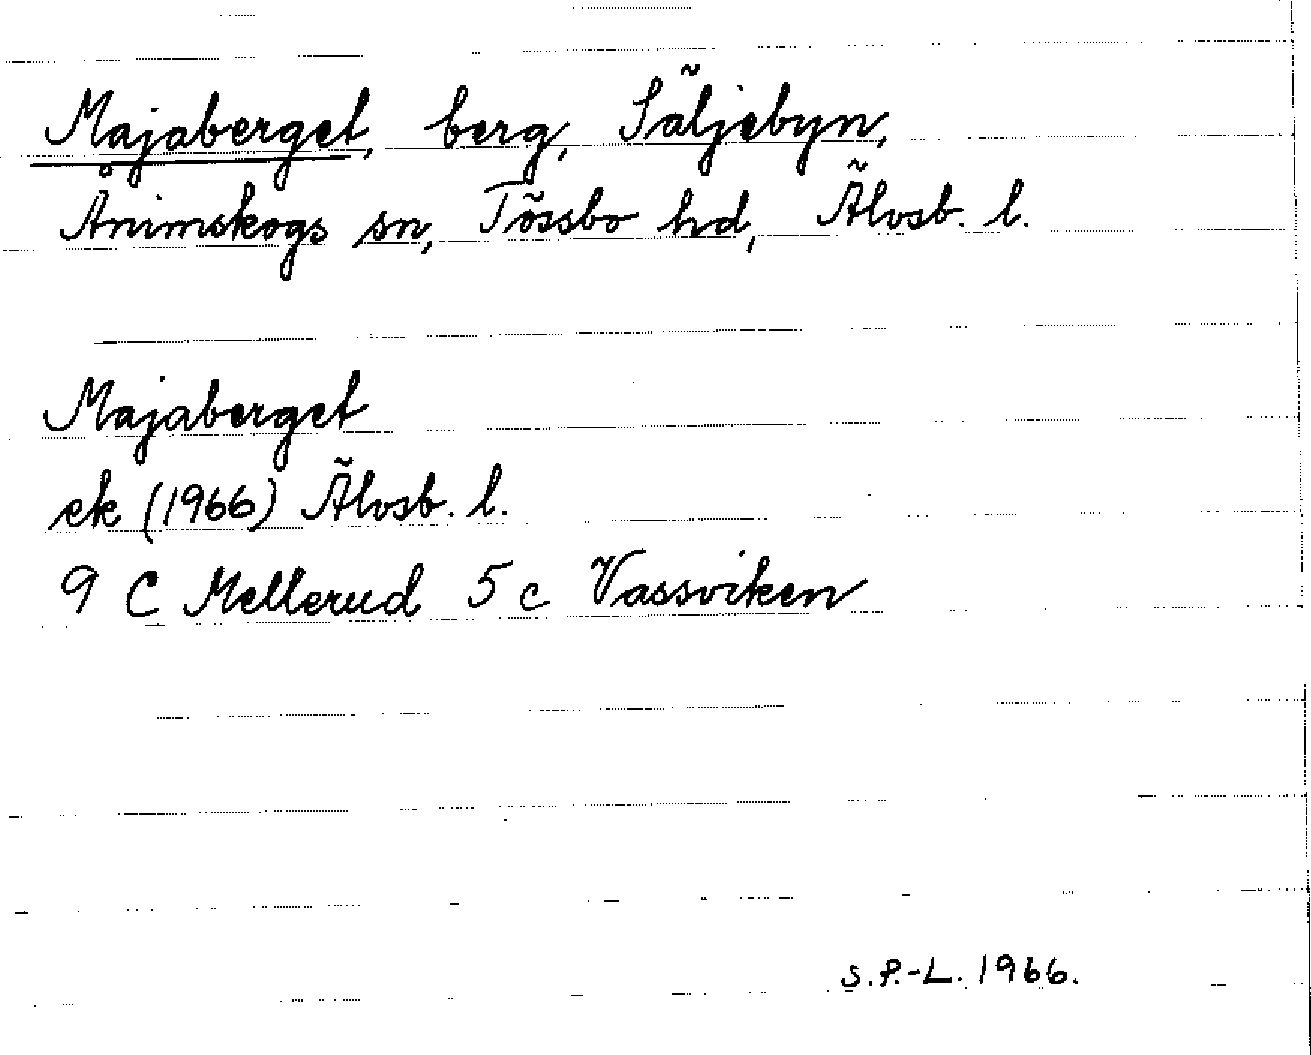 Majaberget, berg, Säljebyn,
Ånimskogs sn, Tössbo hd, Älvsb. l.
Majaberget
ek (1966) Älvsb. l.
9 C Mellerud 5 c Vassviken
S.P.-L. 1966.